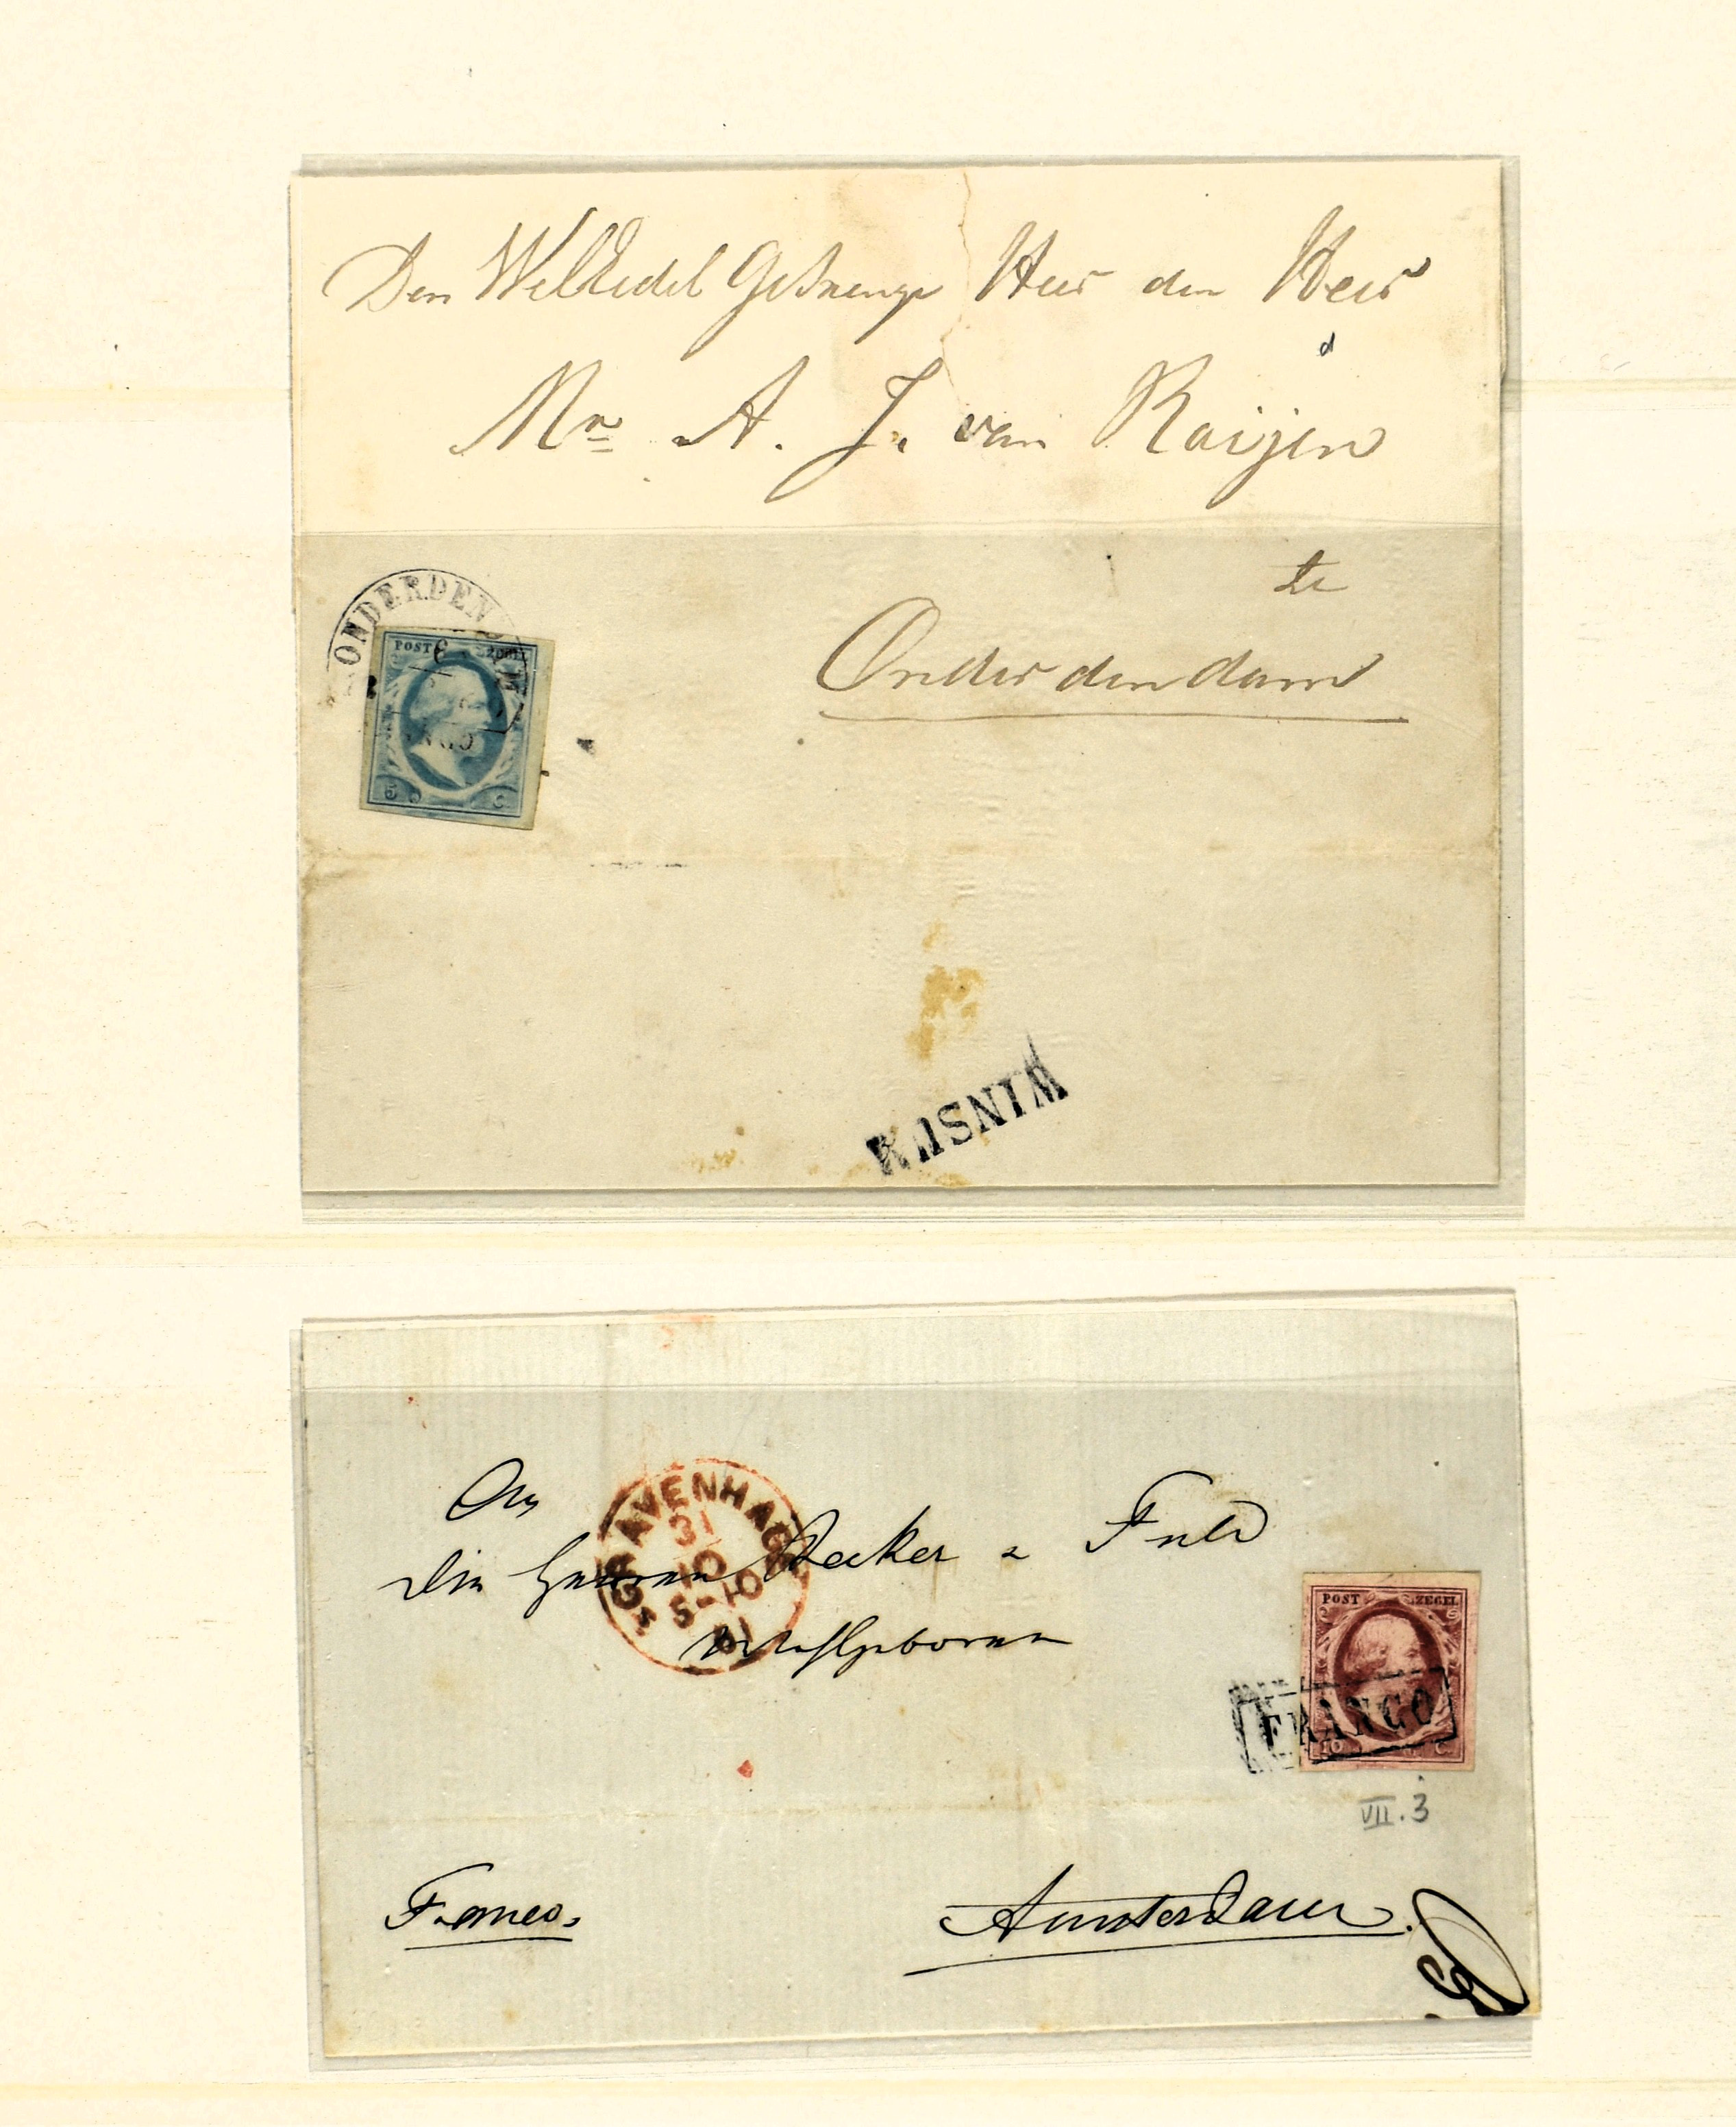 Den WelEdel Gestrenge Heer den Heer
Mr A. J. van Roijen
te
ONDERDEN
POST ZEGEL
5 C
Onderdendam
WINSUM
An
die Herren Becker & Fuld
Wohlgeboren
GRAVENHAGE
31
10
5-10
POST ZEGEL
FRANCO
10 C
VII.3
Franco.
Amsterdam.